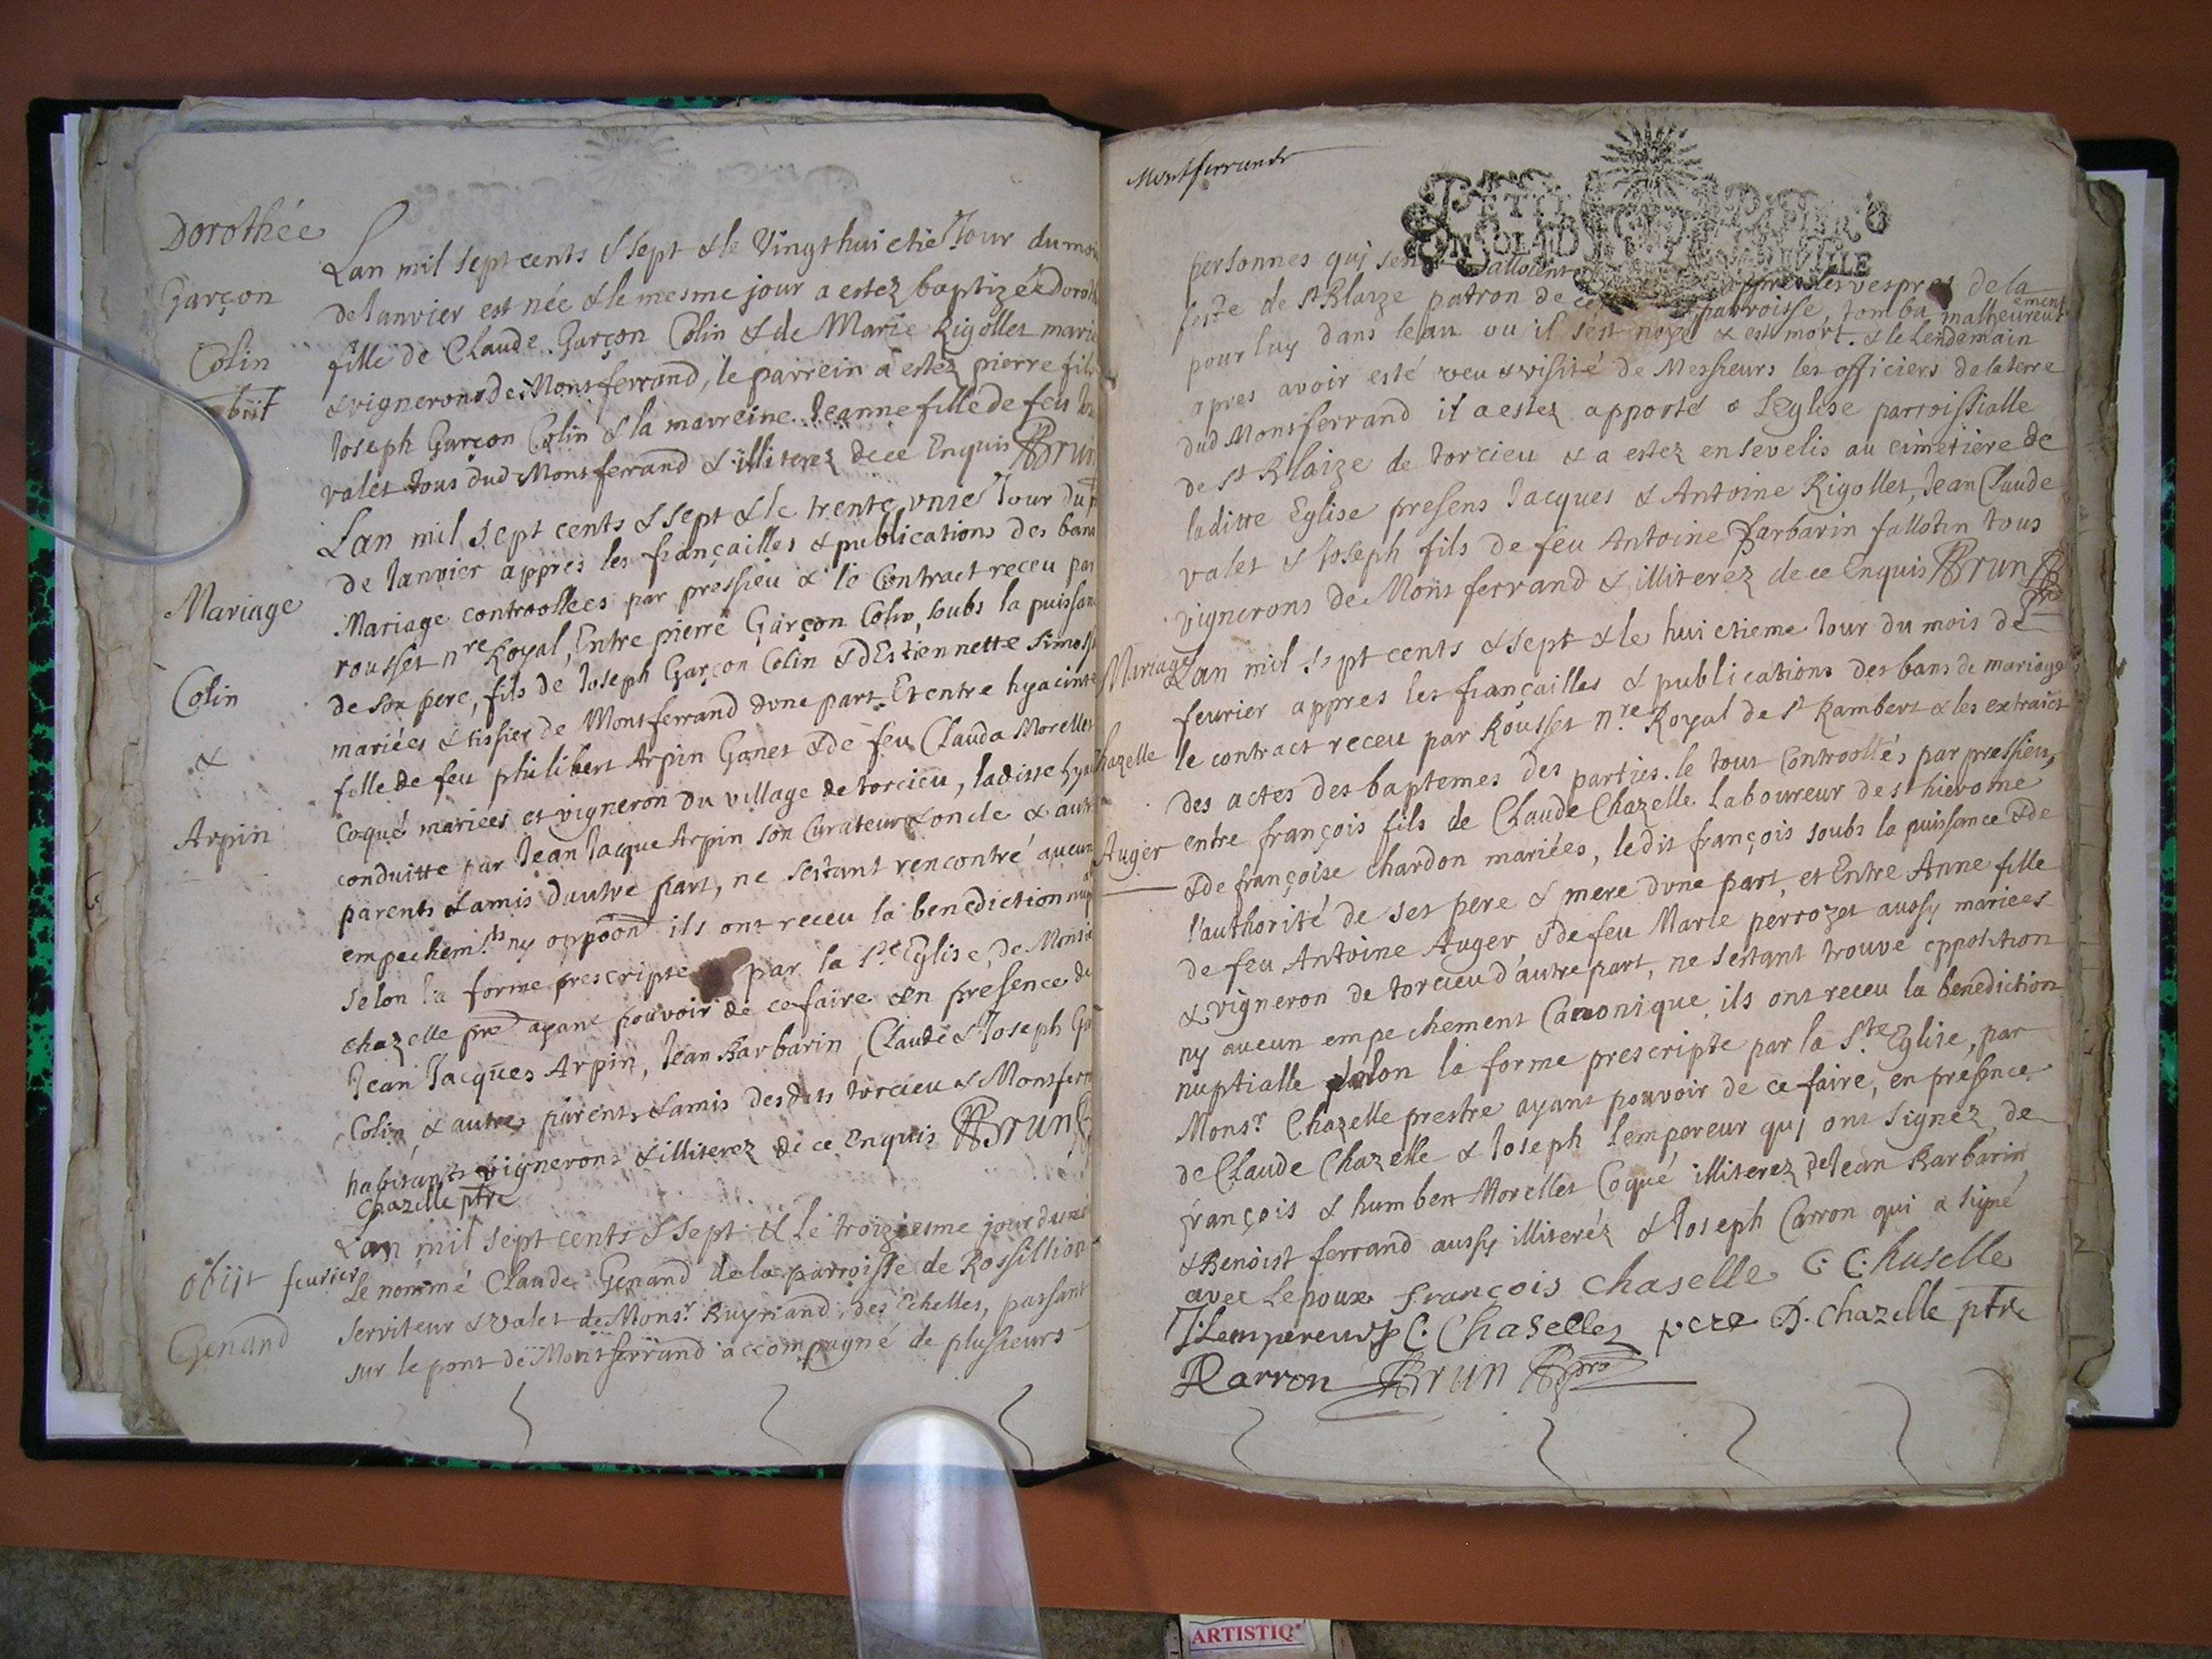 Dorothée
Garçon
Colin
obiit
Lan mil sept cents & sept & le Vingt huictie Jour du moi
de Janvier est née & le mesme jour a estez baptizée Doroth
fille de Claude Garçon Colin & de Marie Rigollet marié
& vignerons de Montferrand, le parrein a estez pierre fils
Joseph Garçon Colin & la marreine Jeanne fille de feu
valet tous dud Montferrand & illiterez de ce Enquis Brun
Mariage
Colin
&
Arpin
Lan mil sept cents & sept & le trente vnie Jour du
de Janvier appres les fiançailles & publications des bans
Mariage controollees par pressieu & le Contract receu par
rousset nre Royal, Entre pierre Garçon Colin, soubs la puissan
de son pere, fils de Joseph Garçon Colin & dEstiennette
mariées & tissier de Montferrand dvne part. Et entre hyacinte
fille de feu philibert Arpin Ganet & de feu Clauda Morellet
Coqué mariées et vigneron du village de torcieu, laditte hya
conduitte par Jean Jacque Arpin son Curateur & oncle & autr
parents & amis dautre part, ne sestant rencontré aucun
empechemts ny oppoon ils ont receu la benediction nup
selon la forme prescripte par la Ste Eglise, de Monsr
chazelle pre ayant pouvoir de ce faire & en presence de
Jean Jacques Arpin, Jean Barbarin, Claude & Joseph Ga
Colin & autres parents & amis desdits torcieu & Montferr
habitants vignerons & illiterez de ce Enquis Brun
Chazelle ptre
obijt
Genand
Lan mil sept cents & sept & Le troiziesme jour du mois
feurier
Le nommé Claude Genand de la parroisse de Rossillion
serviteur & valet de Monsr Ruynand des Echelles, passant
sur le pont de Montferrand accompagné de plusieurs
Montferrand
PETIT PAPIER
personnes qui
feste de St Blaize patron de parroisse, tomba malheureus
ement
pour luy dans leau ou il sest noyé & est mort. & le Lendemain
apres avoir esté veu & visité de Messieurs les officiers de la terre
dud Montferrand il a estez apporté a LEglise parroissialle
de St Blaize de torcieu & a estez ensevelis au cimetiere de
laditte Eglise presens Jacques & Antoine Rigollet, Jean Claude
valet & Joseph fils de feu Antoine Barbarin fallotin tous
vignerons de Montferrand & illiterez de ce Enquis Brun
Mariage
Chazelle
Auger
Lan mil sept cents & sept & le huictieme Jour du mois de
feurier appres les fiançailles & publications des bans de mariage
le contract receu par Rousset nre Royal de St Rambert & les extraict
des actes des baptemes des parties. le tout Controollés par pressieu,
entre françois fils de Claude Chazelle Laboureur de St hierome
& de françoise chardon mariées, ledit françois soubs la puissance & de
l'authorité de ses pere & mere dvne part, et Entre Anne fille
de feu Antoine Auger & de feu Marie perrozet aussy mariees
& vigneron de torcieu d'autre part, ne sestant trouvé opposition
ny aucun empechement Canonique ils ont receu la benediction
nuptialle selon la forme prescripte par la Ste Eglise, par
Monsr Chazelle prestre ayant pouvoir de ce faire, en presence
de Claude Chazelle & Joseph Lempereur qui ont signez, de
françois & humbert Morellet Coqué illiterez de Jean Barbarin
& Benoist ferrand aussy illiteréz & Joseph Carron qui a signé
avec Lepoux françois chaselle C. Chaselle
J. Lempereur C. Chaselles pere D. Chazelle ptre
Carron Brun